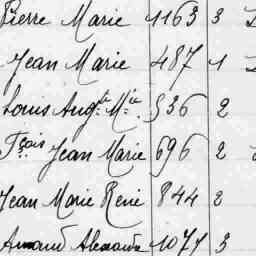 Pierre Marie 1163 3
Jean Marie 487 1
Louis Augte Mie 536 2
Fçois Jean Marie 696 2
Jean Marie René 844 2
Armand Alexandre 1077 3